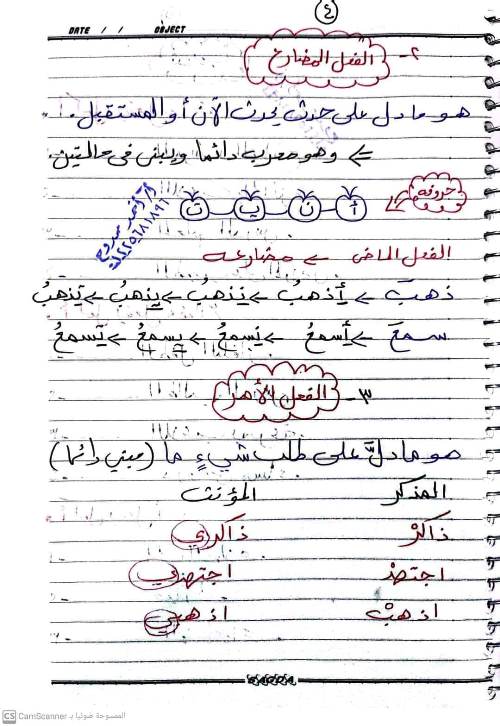 ٤
DATE / / OBJECT
٢- الفعل المضارع
هو ما دل على حدث يحدث الآن أو المستقبل.
وهو معرب دائما ويبنى فى حالتين.
حروفه
أ - ن - ي - ت
الفعل الماضى ← مضارعه
ذهبَ ← أذهبُ ← نذهبُ ← يذهبُ ← تذهبُ
سمعَ ← أسمعُ ← نسمعُ ← يسمعُ ← تسمعُ
٣- الفعل الأمر
هو ما دلَّ على طلب شيءٍ ما (مبني دائما)
المذكر المؤنث
ذاكرْ ذاكري
اجتهدْ اجتهدي
اذهبْ اذهبي
CS CamScanner الممسوحة ضوئيا بـ